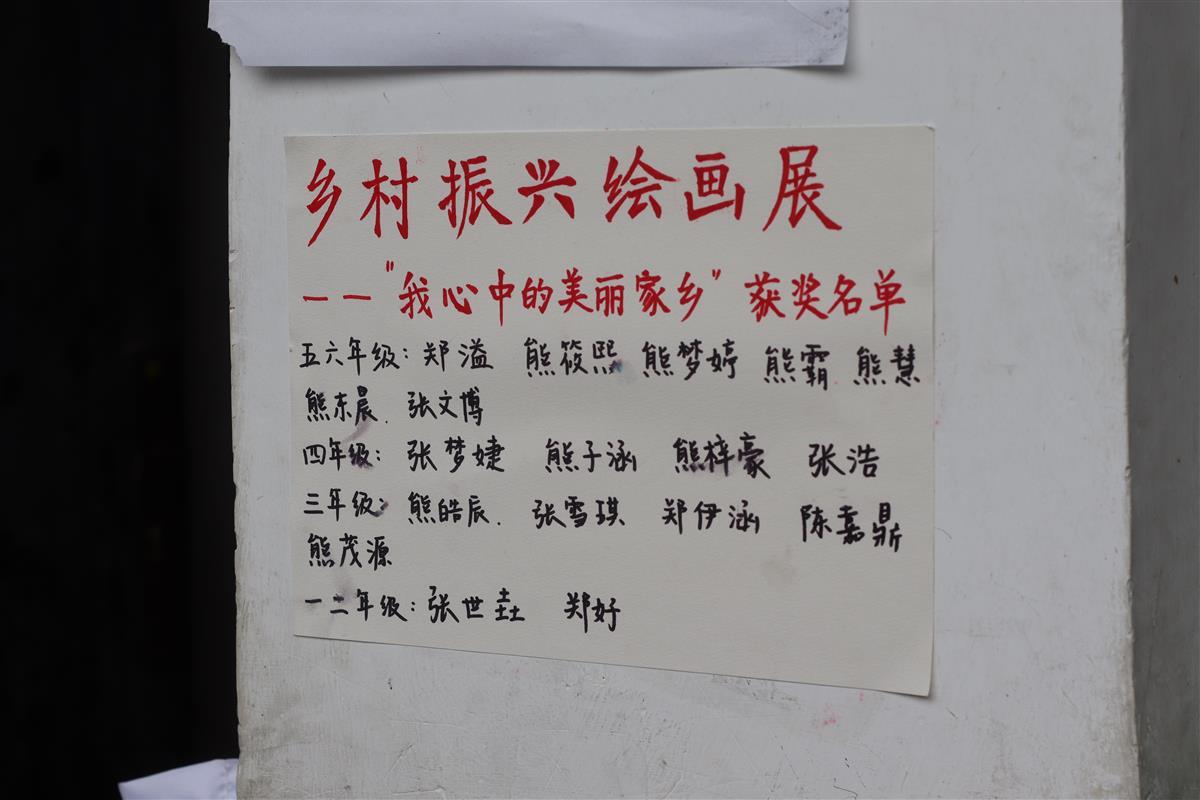 乡村振兴绘画展
——"我心中的美丽家乡"获奖名单
五六年级：郑溢 熊筱熙 熊梦婷 熊霸 熊慧
熊东晨、张文博
四年级：张梦婕 熊子涵 熊梓豪 张浩
三年级：熊皓辰、张雪琪 郑伊涵 陈嘉鼎
熊茂源
一二年级：张世垚 郑好